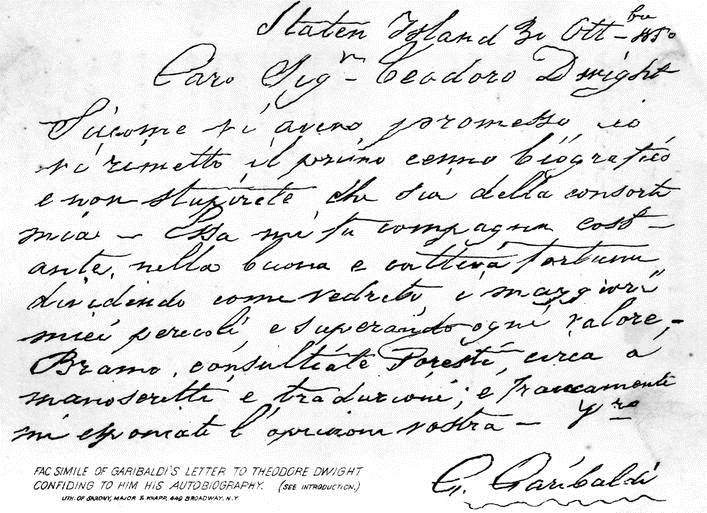 Staten Island 30 Ott-bre 1850
Caro Sig-r Teodoro Dwight
Siccome vi avevo promesso io
vi rimetto il primo cenno biografico
e non stupirete che sia della consorte
mia — Essa mi fu compagna cost-
ante, nella buona e cattiva fortuna
dividendo come vedrete, i maggiori
miei pericoli, e superando ogni valore,-
Bramo, consultiate Foresti, circa a
manoscritti, e traduzioni; e francamente
mi esponiate l'opinione vostra — V-ro
G. Garibaldi
FAC SIMILE OF GARIBALDI'S LETTER TO THEODORE DWIGHT
CONFIDING TO HIM HIS AUTOBIOGRAPHY. (SEE INTRODUCTION.)
LITH. OF SARONY, MAJOR & KNAPP, 449 BROADWAY, N.Y.